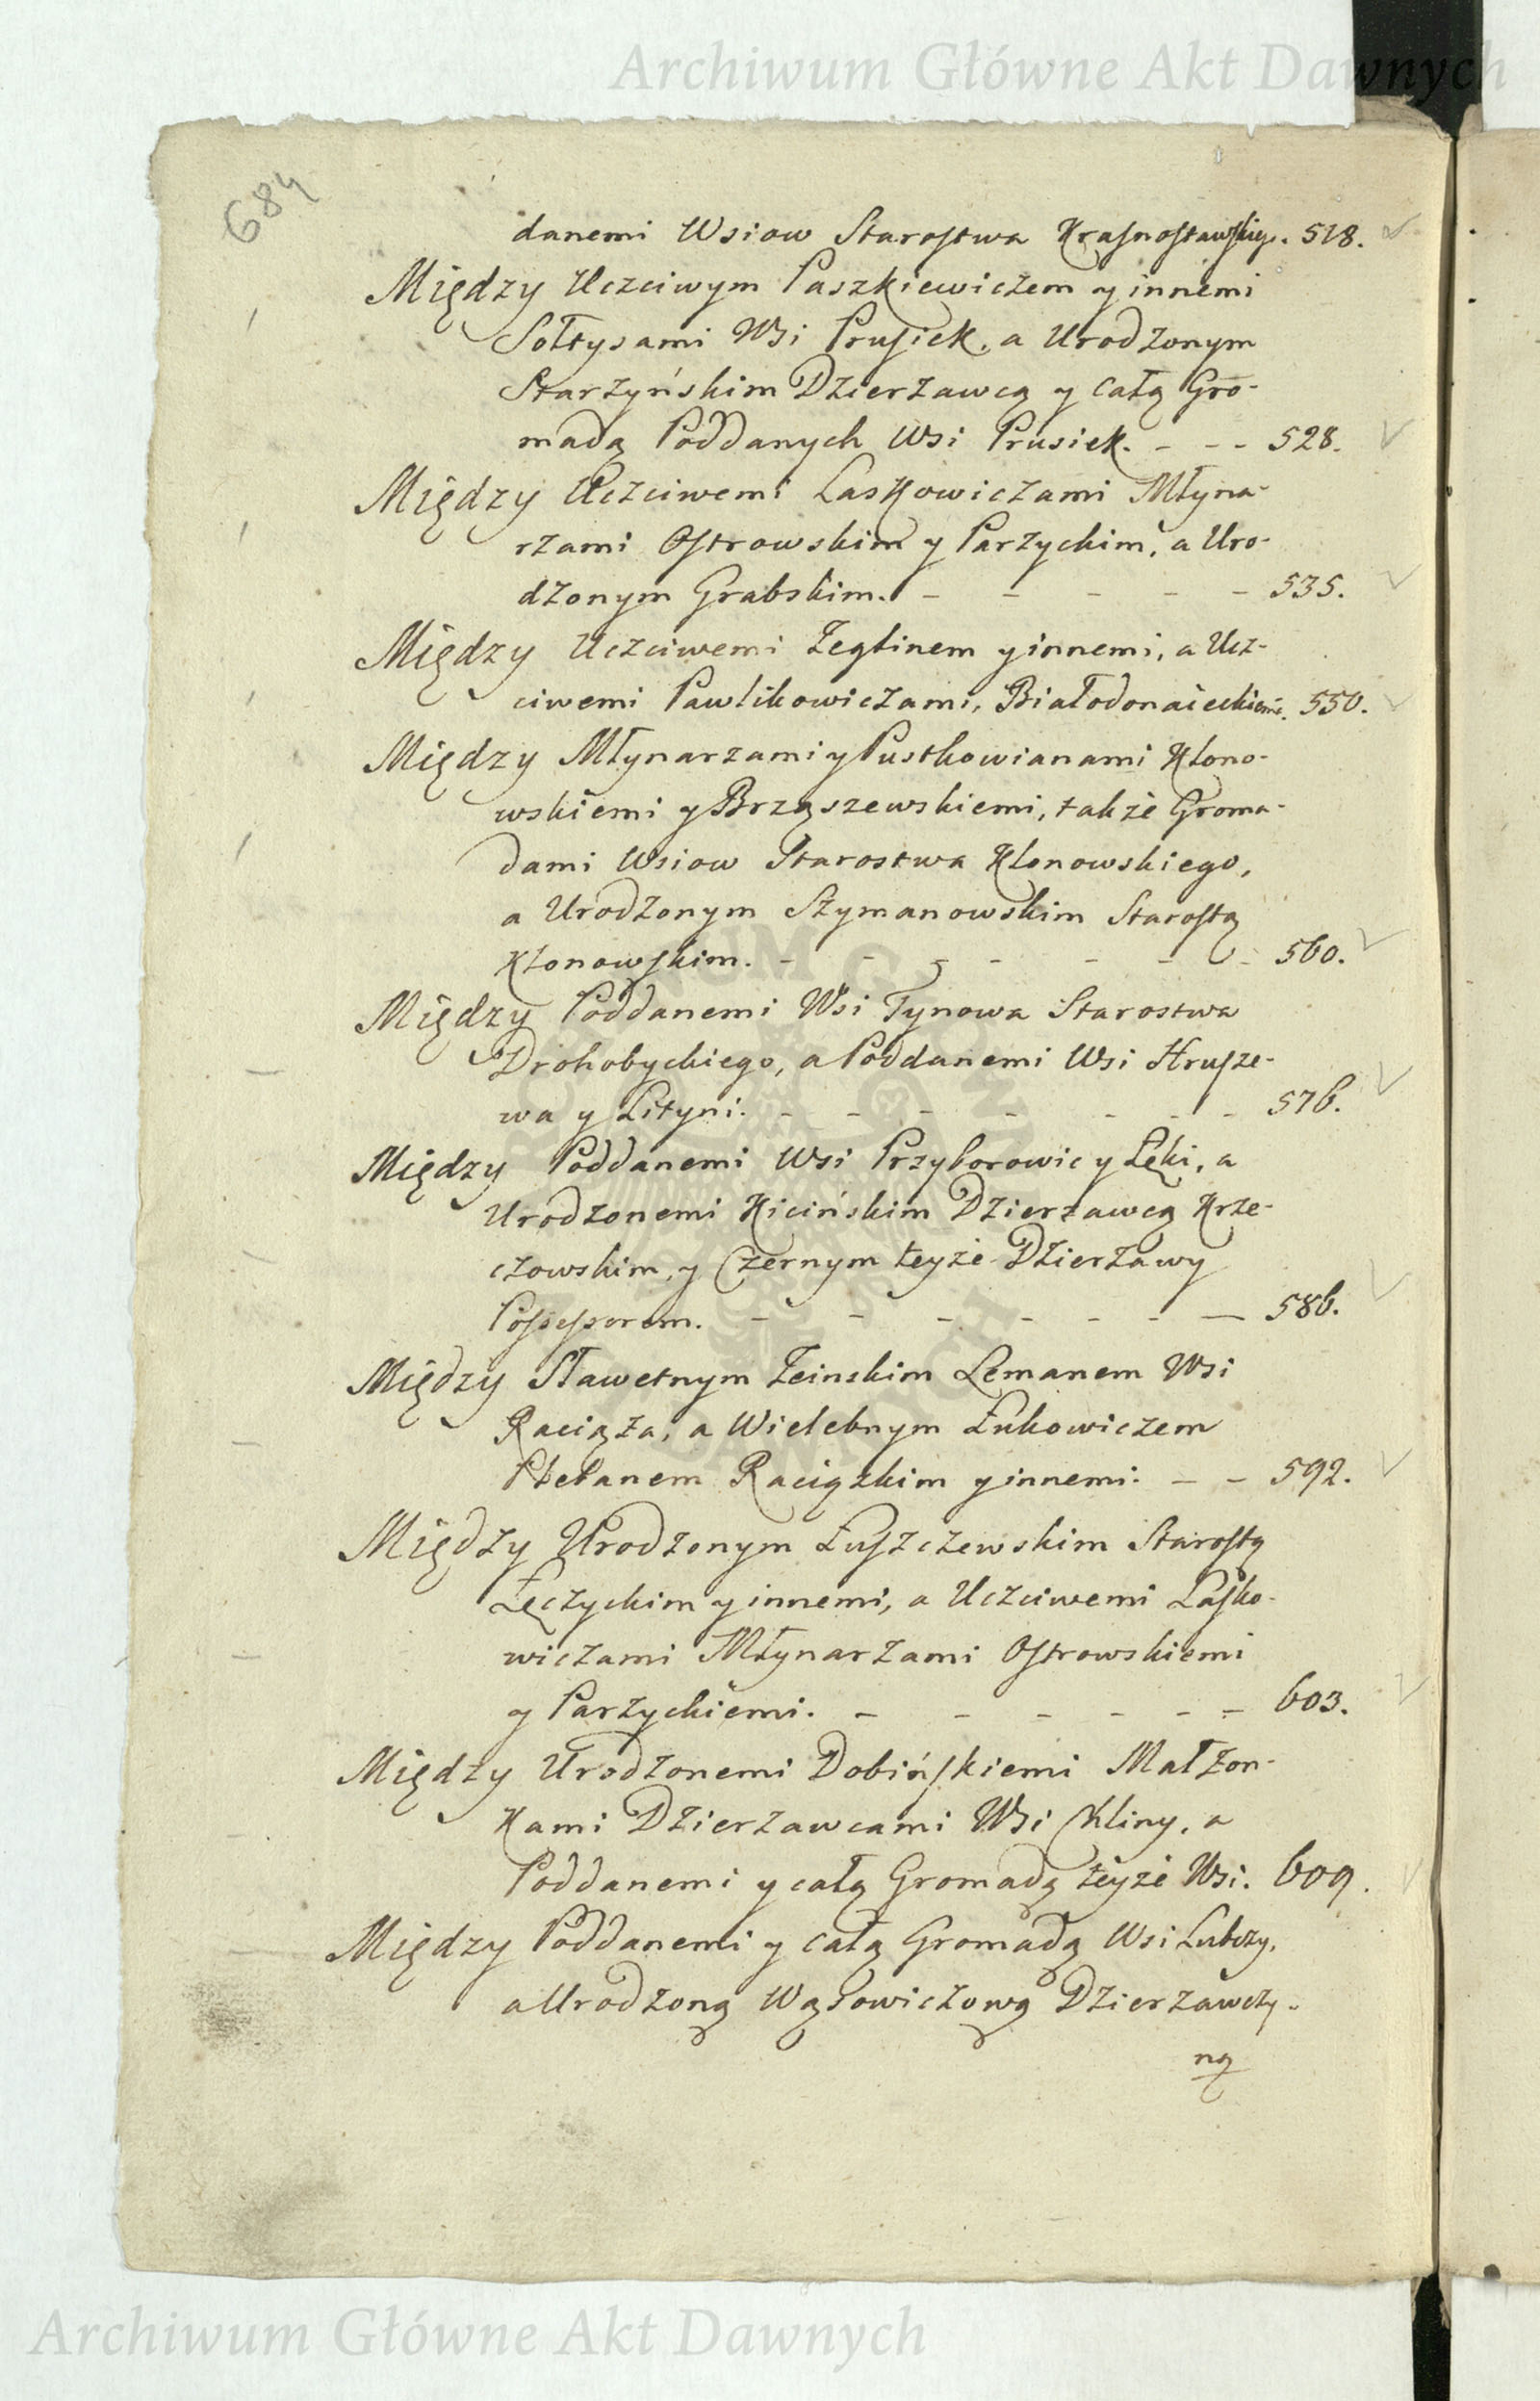 Archiwum Główne Akt Dawnych
684
danemi Wsiow Starostwa Krasnostawskiego. 518.
Między Uczciwym Paszkiewiczem y innemi
Sołtysami Wsi Prusiek, a Urodzonym
Starzyńskim Dzierzawcą y całą Gro-
madą Poddanych Wsi Prusiek. - - - 528.
Między Uczciwemi Laskowiczami Młyna-
rzami Ostrowskim y Parzyckim, a Uro-
dzonym Grabskim. - - - - - 535.
Między Uczciwemi Zeglinem y innemi, a Ucz-
ciwemi Pawlikowiczami, Białodonaieckiemi. 550.
Między Młynarzami y Pustkowianami Klono-
wskiemi y Brząszewskiemi, także Groma-
dami Wsiow Starostwa Klonowskiego,
a Urodzonym Szymanowskim Starostą
Klonowskim. - - - - - - - 560.
Między Poddanemi Wsi Tynowa Starostwa
Drohobyckiego, a Poddanemi Wsi Hrusze-
wa y Lityni. - - - - - - - 576.
Między Poddanemi Wsi Przyborowic y Łęki, a
Urodzonemi Kicińskim Dzierzawcą Krze-
czowskim, y Czernym teyże Dzierzawy
Possessorem. - - - - - - - 586.
Między Sławetnym Zeinskim Lemanem Wsi
Raciąża, a Wielebnym Łukowiczem
Plebanem Raciązkim y innemi: - - 592.
Między Urodzonym Łuszczewskim Starostą
Łęczyckim y innemi, a Uczciwemi Lasko-
wiczami Młynarzami Ostrowskiemi
y Parzyckiemi. - - - - - - 603.
Między Urodzonemi Dobińskiemi Małżon-
kami Dzierzawcami Wsi Kliny, a
Poddanemi y całą Gromadą teyże Wsi. 609.
Między Poddanemi y całą Gromadą Wsi Lubczy,
a Urodzoną Wąsowiczową Dzierzawczy-
ną
Archiwum Główne Akt Dawnych